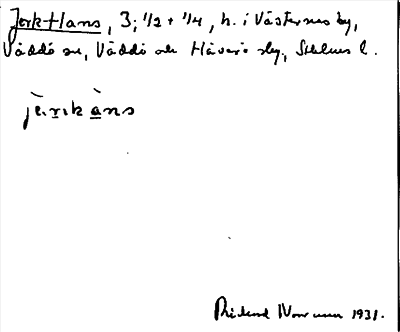 Jerk-Hans, 3; 1/2 + 1/4, h. i Västernäs by,
Väddö sn, Väddö och Häverö slg, Sthlms l.
jè̄rikàns
Rickard Norman 1931.